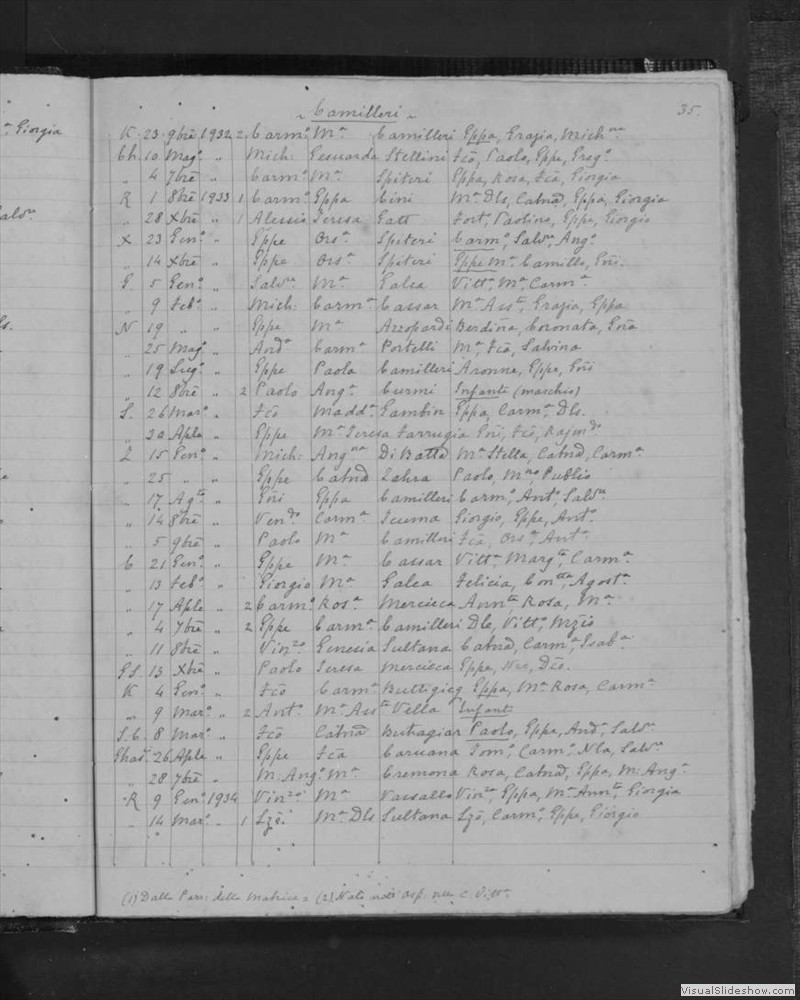 Camilleri
35.
K 23 9bre 1932 2 Carmo Ma Camilleri Eppa, Grazia, Michna
Ch. 10 Mago " Mich: Gesuarda Stellini Fco, Paolo, Eppe, Grego
" 4 7bre " Carmo Ma Spiteri Eppa, Rosa, Fca, Giorgia
R 1 8bre 1933 1 Carmo Eppa Cini Ma Dls, Catnd, Eppa, Giorgia
" 28 Xbre " 1 Alessio Teresa Gatt Fort, Paolino, Eppe, Giorgio
X. 23 Geno " Eppe Orsa Spiteri Carmo, Salvre, Ango
" 14 Xbre " Eppe Orsa Spiteri Eppe Ma Camillo, Gni.
G. 5 Geno " Salvre Ma Galea Vitta, Ma Carma
" 9 Febo " Mich: Carma Cassar Ma Assta, Grazia, Eppa
N 19 " " Eppe Ma Azzopardi Berdina, Coronata, Gna
" 25 Mago " Anda Carma Portelli Ma, Fca, Salvina
" 19 Lugo " Eppe Paola Camilleri Aronne, Eppe, Gni
" 12 8bre " 2 Paolo Anga Curmi Infante (maschio)
S. 26 Maro " Fco Madda Gambin Eppa, Carma, Dls.
" 30 Aple " Eppe Ma Teresa Farrugia Gni, Fco, Rajmdo
Z 15 Geno " Mich: Angna Di Batta Ma Stella, Catnd, Carma
" 25 " " Eppe Catnd Zahra Paolo, Mno Publio
" 17 Agto " Gni Eppa Camilleri Carmo, Anto, Salvre
" 14 8bre " Vendo Carma Giorgio, Eppe, Anto
" 5 9bre " Paolo Ma Camilleri Fca, Orsa, Anta
C 21 Geno " Eppe Ma Cassar Vitta, Margta, Carma
" 13 Febo " Giorgio Ma Galea Felicia, Contta, Agosta
" 17 Aple " 2 Carmo Rosa Mercieca Annta, Rosa, Ma
" 4 7bre " 2 Eppe Carma Camilleri Dls, Vitto, Mzio
" 11 8bre " Vinzo Genesia Sultana Catnd, Carma, Isaba
GS. 13 Xbre " Paolo Teresa Mercieca Eppa, Dco.
K 4 Geno " Fco Carma Buttigieg Eppa, Ma Rosa, Carma
" 9 Maro " 2 Anto Ma Assta Vella Infante
S.C. 8 Maro " Fco Catnd Buhagiar Paolo, Eppa, Anda, Salvre
Ghas. 26 Aple " Eppe Fca Caruana Tomo, Carmo, Nla, Salvre
" 28 7bre " M. Ango Ma Cremona Rosa, Catnd, Eppa, M: Anga
R 9 Geno 1934 Vinzo Ma Vassallo Vinta, Eppa, Ma Annta, Giorgia
" 14 Maro " 1 Lzo: Ma Dls Sultana Lzo, Carmo, Eppe, Giorgio
(1) Dalla Parr: della Matrice = (2) Nati
a Giorgia
VisualSlideshow.com